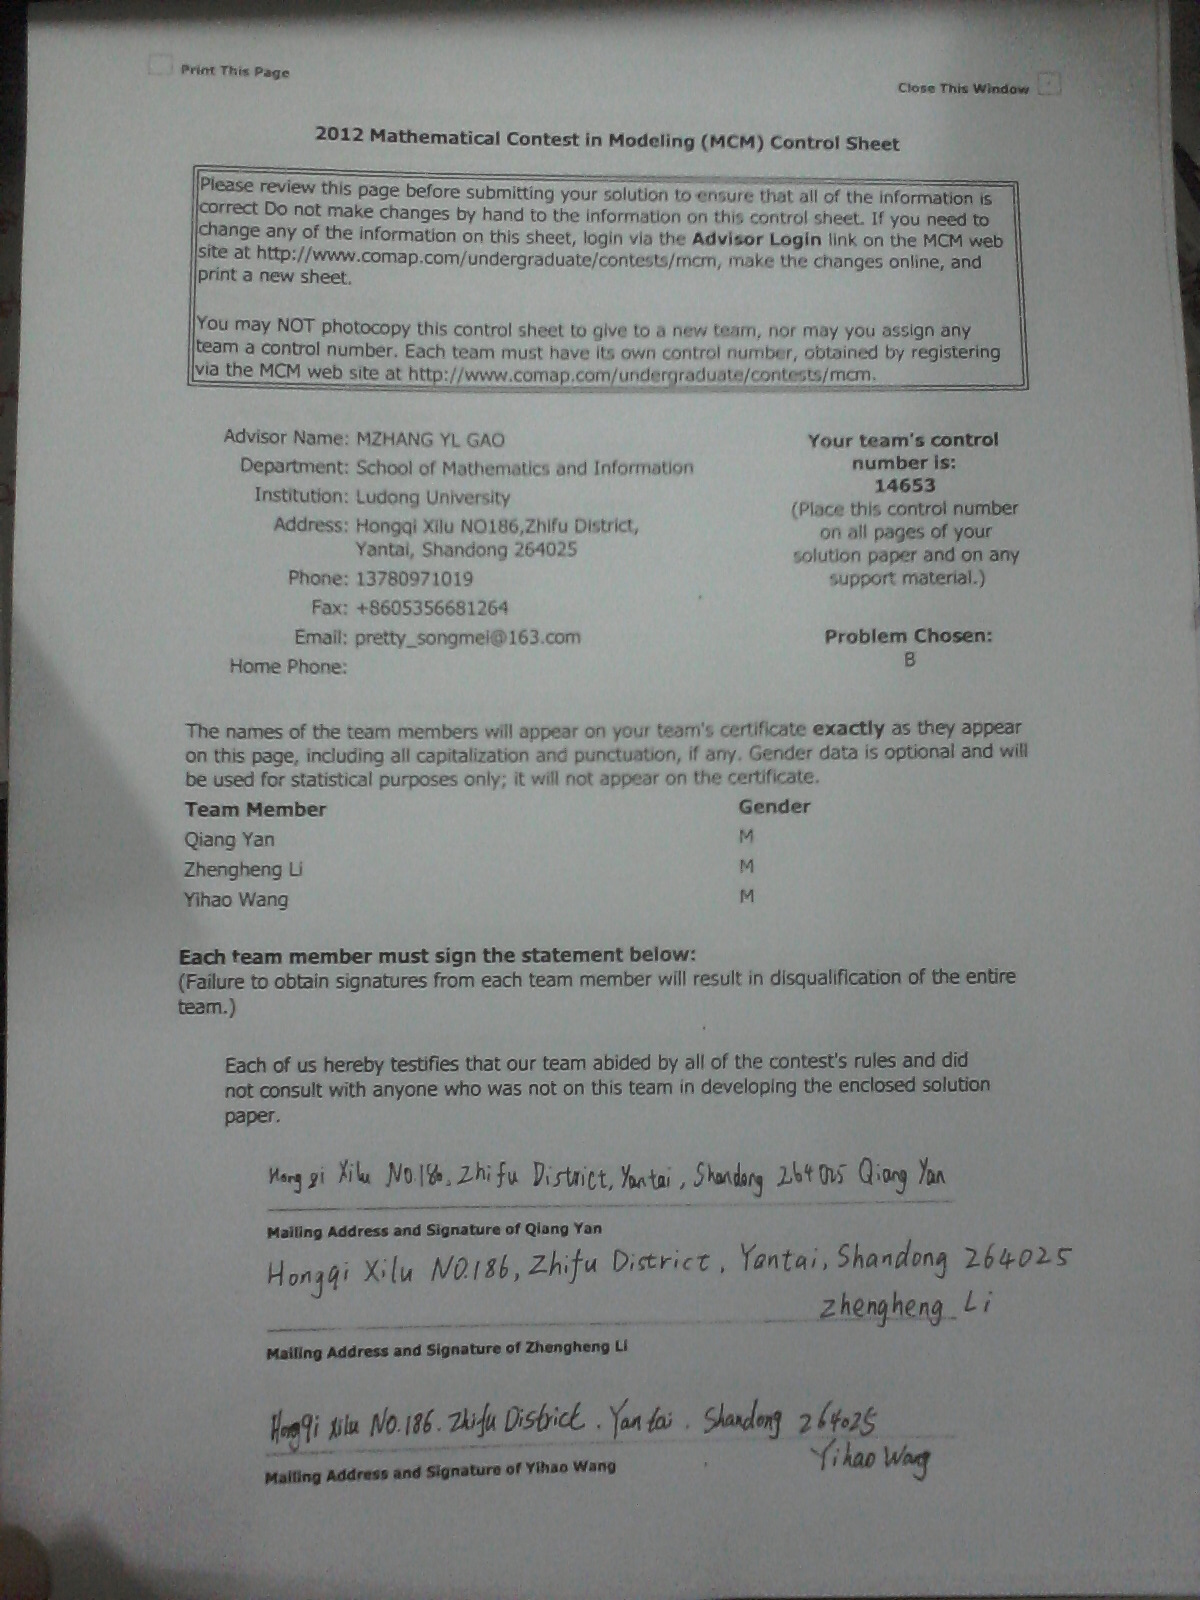 Print This Page
Close This Window
2012 Mathematical Contest in Modeling (MCM) Control Sheet
Please review this page before submitting your solution to ensure that all of the information is
correct Do not make changes by hand to the information on this control sheet. If you need to
change any of the information on this sheet, login via the Advisor Login link on the MCM web
site at http://www.comap.com/undergraduate/contests/mcm, make the changes online, and
print a new sheet.
You may NOT photocopy this control sheet to give to a new team, nor may you assign any
team a control number. Each team must have its own control number, obtained by registering
via the MCM web site at http://www.comap.com/undergraduate/contests/mcm.
Advisor Name: MZHANG YL GAO
Department: School of Mathematics and Information
Institution: Ludong University
Address: Hongqi Xilu NO186,Zhifu District,
Yantai, Shandong 264025
Phone: 13780971019
Fax: +8605356681264
Email: pretty_songmei@163.com
Home Phone:
Your team's control
number is:
14653
(Place this control number
on all pages of your
solution paper and on any
support material.)
Problem Chosen:
B
The names of the team members will appear on your team's certificate exactly as they appear
on this page, including all capitalization and punctuation, if any. Gender data is optional and will
be used for statistical purposes only; it will not appear on the certificate.
Team Member Gender
Qiang Yan M
Zhengheng Li M
Yihao Wang M
Each team member must sign the statement below:
(Failure to obtain signatures from each team member will result in disqualification of the entire
team.)
Each of us hereby testifies that our team abided by all of the contest's rules and did
not consult with anyone who was not on this team in developing the enclosed solution
paper.
Hongqi Xilu NO.186, Zhifu District, Yantai, Shandong 264025 Qiang Yan
Mailing Address and Signature of Qiang Yan
Hongqi Xilu NO.186, Zhifu District, Yantai, Shandong 264025
Zhengheng Li
Mailing Address and Signature of Zhengheng Li
Hongqi Xilu NO.186. Zhifu District. Yantai. Shandong 264025
Yihao Wang
Mailing Address and Signature of Yihao Wang